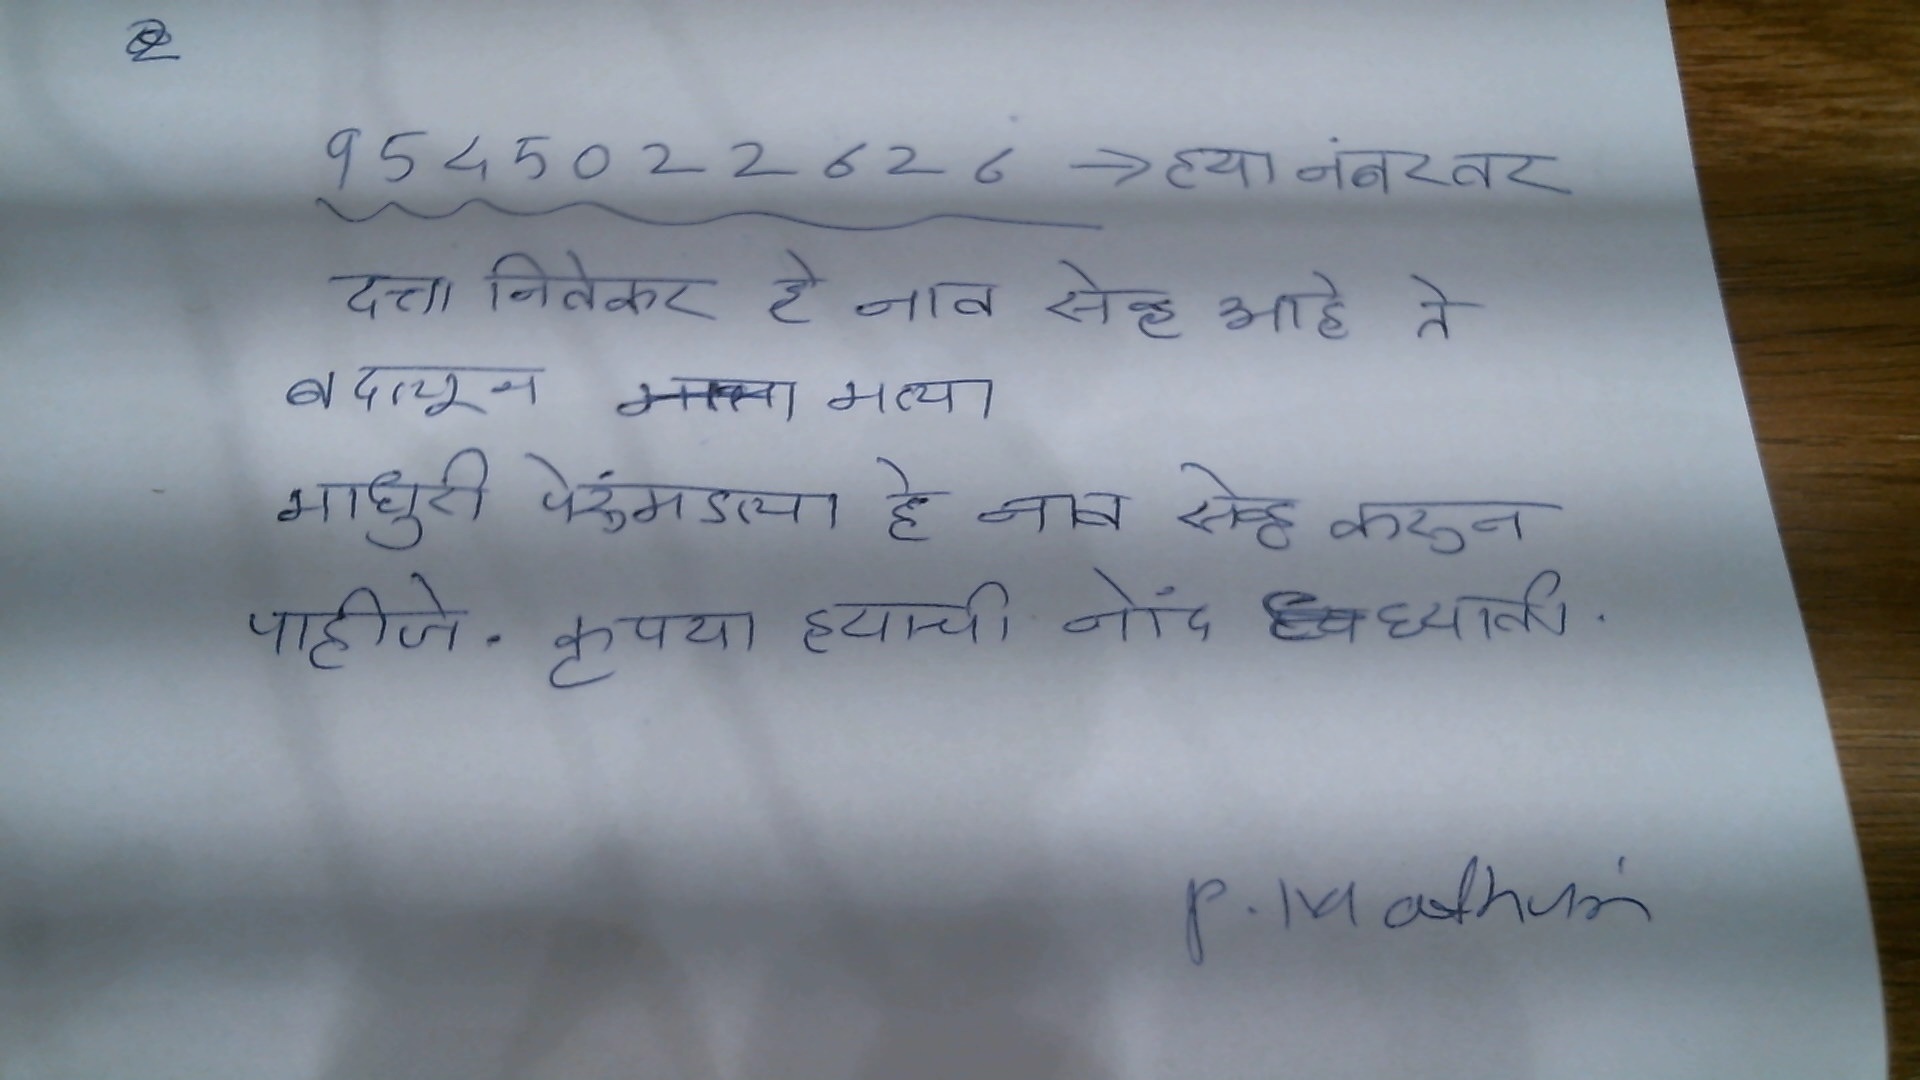 2
9545022626 → ह्या नंबरवर
दत्ता नितेकर हे नाव सेव्ह आहे ते
बदलून मल्या
माधुरी पेरुंमडल्या हे नाव सेव्ह करुन
पाहीजे. कृपया ह्याची नोंद घ्यावी.
P. Madhuri